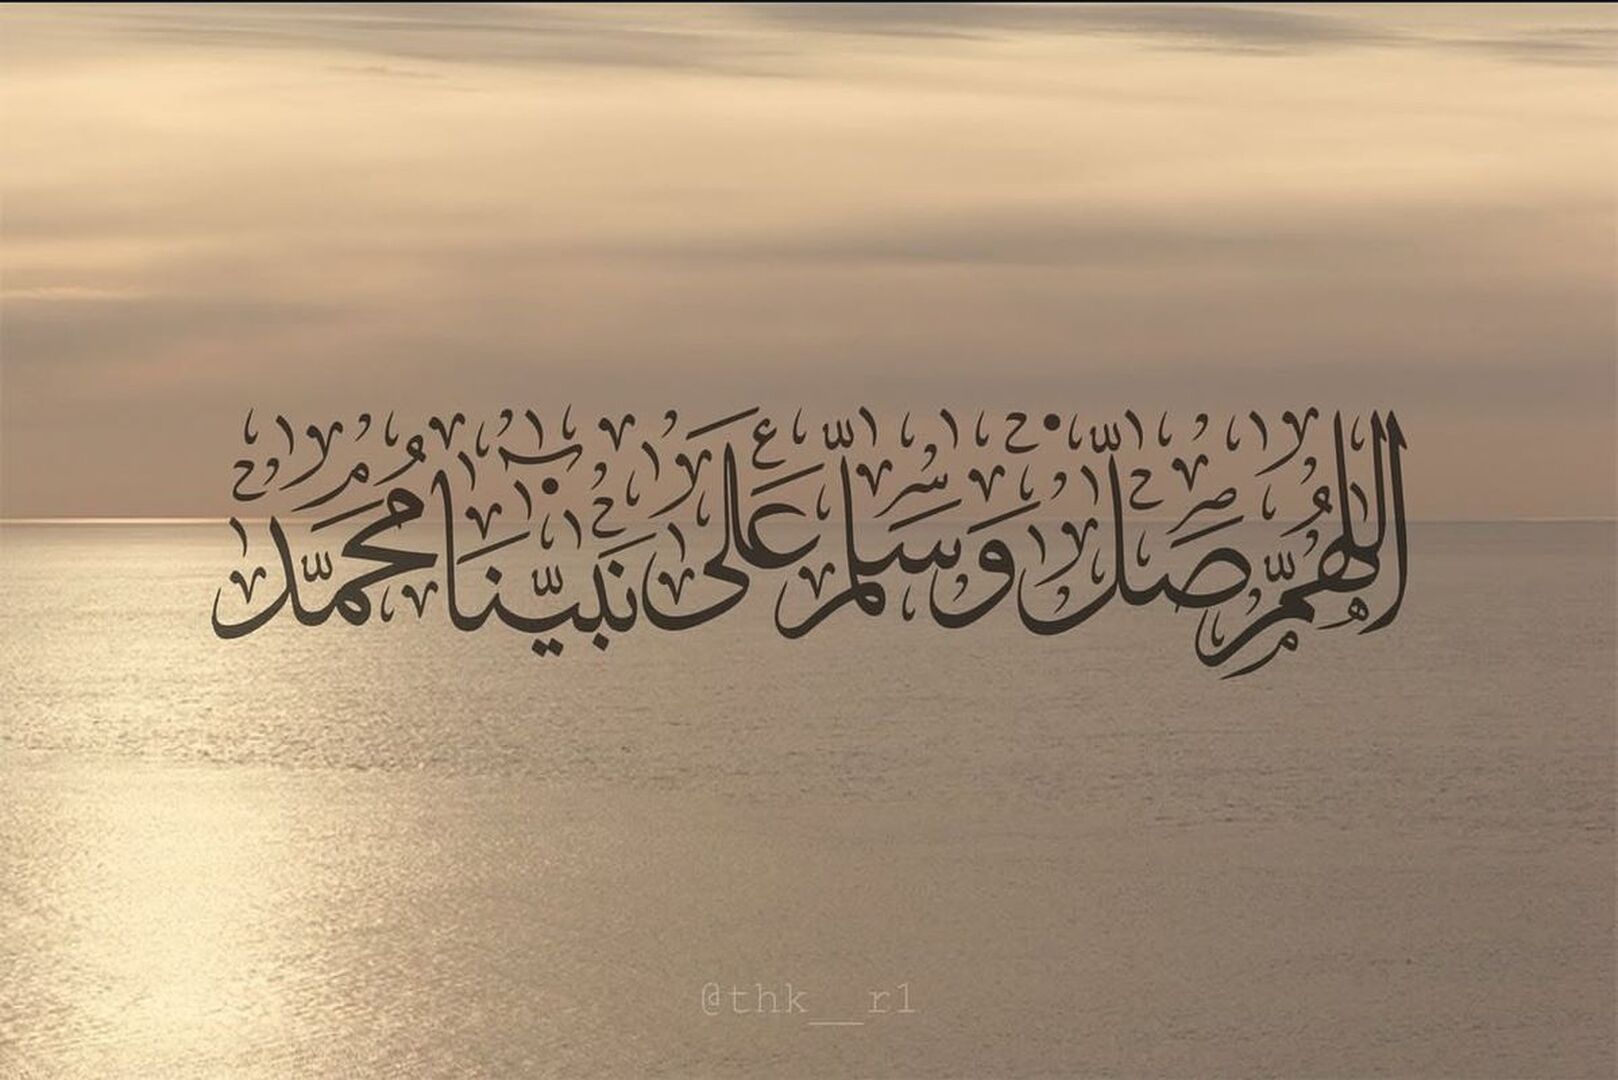 اللهم صل وسلم على نبينا محمد
@thk__r1